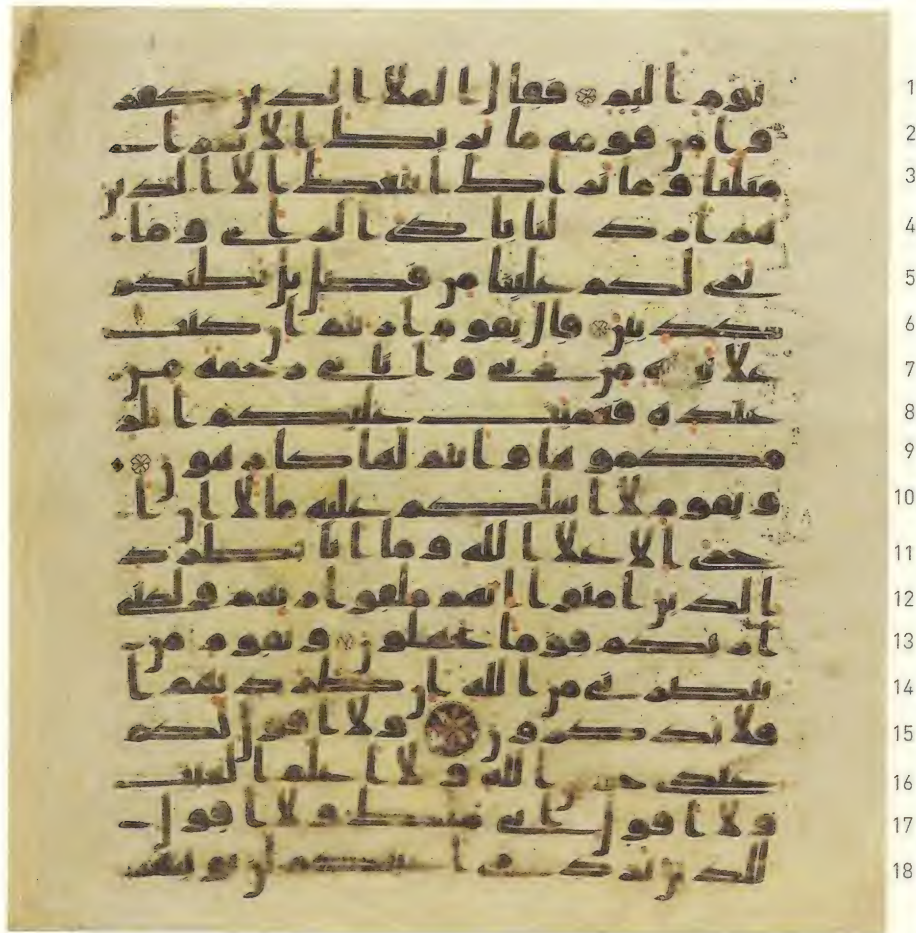 يوم اليم فقال الملا الذين كفر 1
وا من قومه ما نريك الا بشرا 2
مثلنا وما نريك اتبعك الا الذين 3
هم اراذلنا بادي الراي وما 4
نرى لكم علينا من فضل بل نظنكم 5
كذبين قال يقوم اريتم ان كنت 6
على بينة من ربي واتاني رحمة من 7
عنده فعميت عليكم انلز 8
مكموها وانتم لها كارهون 9
ويقوم لا اسلكم عليه مالا ان ا 10
جري الا على الله وما انا بطارد 11
الذين امنوا انهم ملقوا ربهم ولكني 12
اريكم قوما تجهلون ويقوم من 13
ينصرني من الله ان طردتهم ا 14
فلا تذكرون ولا اقول لكم 15
عندي خزاين الله ولا اعلم الغيب 16
ولا اقول اني ملك ولا اقول 17
للذين تزدري اعينكم لن يوتيهم 18